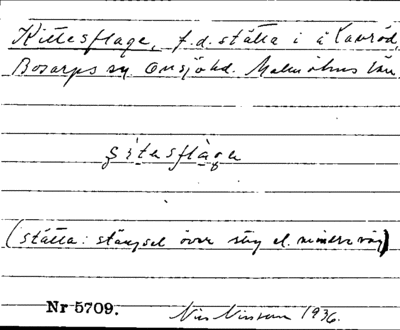 Kittesflage, f.d. stätta i å
Bosarps sn. Onsjö hd. Malmöhus län
(stätta: stängsel över stig el. mindre väg)
Nr 5709.
Nils Nilsson 1936.